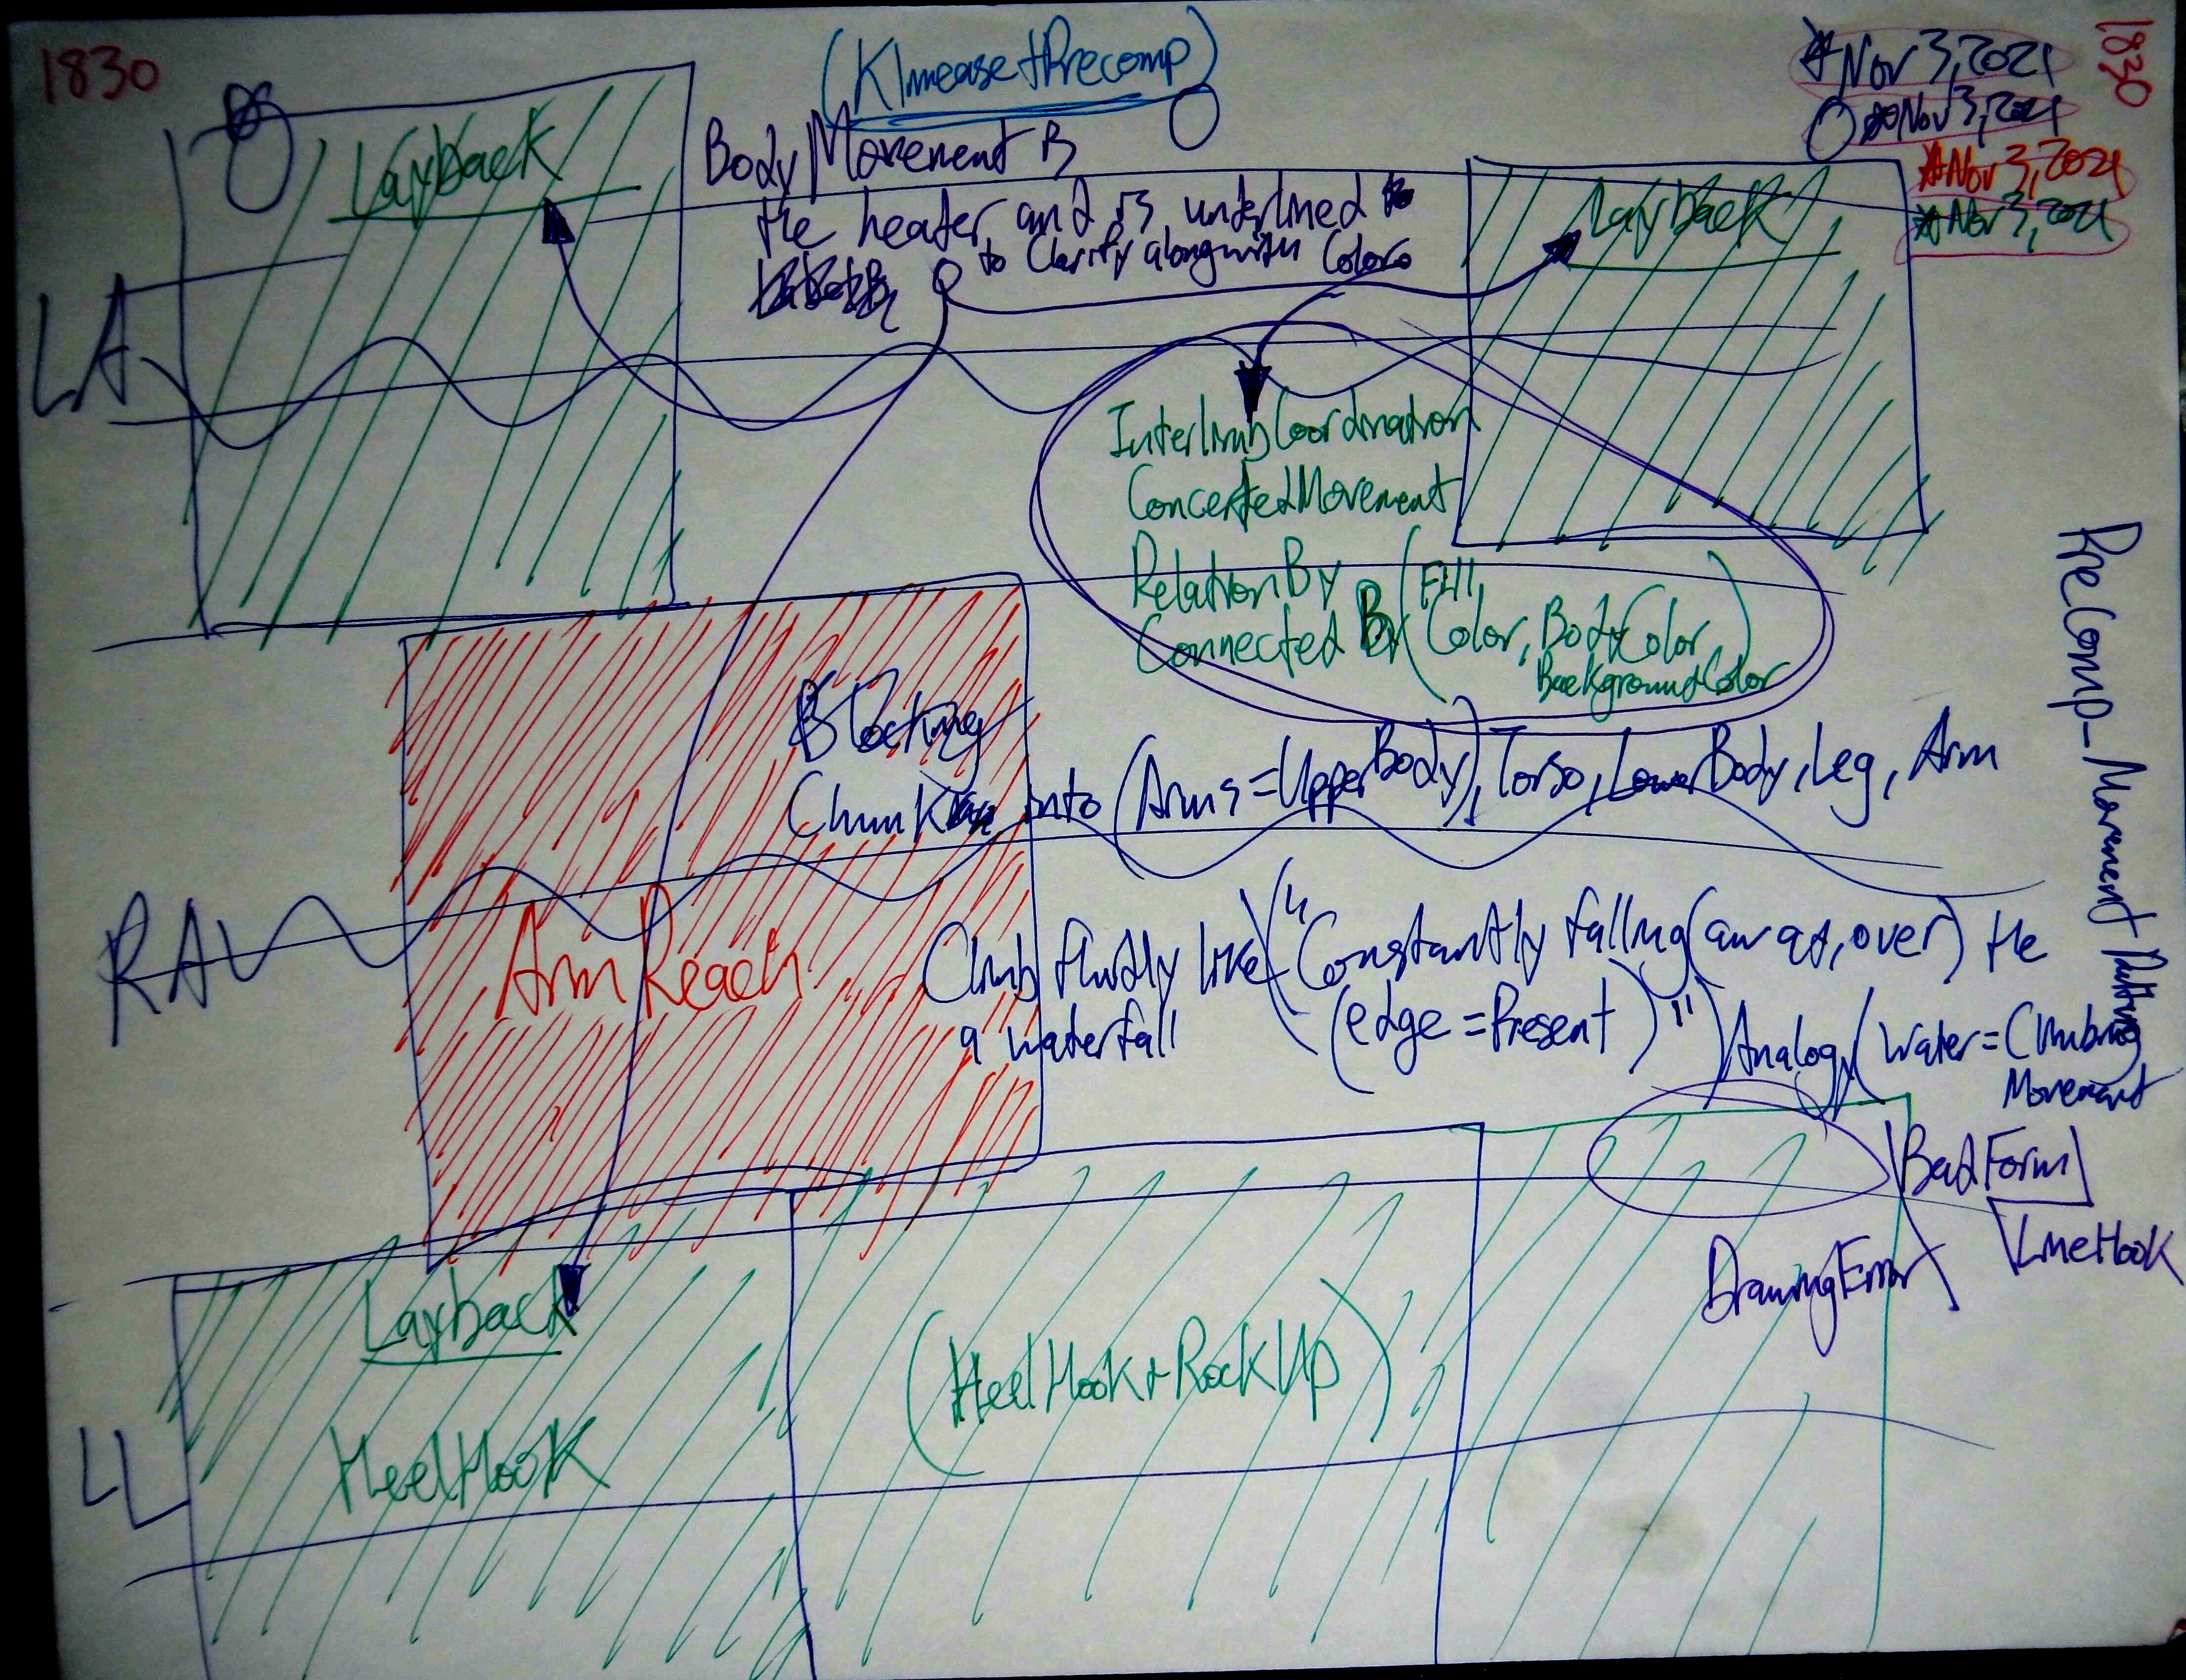 1830
(KlmeasetPrecomp)
*Nov 3,2021
1830
*Nov 3,2021
*Nov 3,2021
*Nov 3,2021
Layback
Body Movement is
the heater and is underlined to
to Clarify along with Color
Layback
LA
InterlimbCoordination
ConcertedMovement
RelationBy
Connected By (Fill Color, BodyColor,
BackgroundColor)
PreComp_Movement Putting
Blocking
Chunk into (Arms=UpperBody), Torso, LowerBody, Leg, Arm
RA
ArmReach
Climb fluidly like ("Constantly falling (away, over) the
a waterfall
(edge=Present)")
Analogy (Water=Climbing
Movement
BadForm
LineHook
DrawingError
Layback
(HeelHook+RockUp)
HeelHook
LL